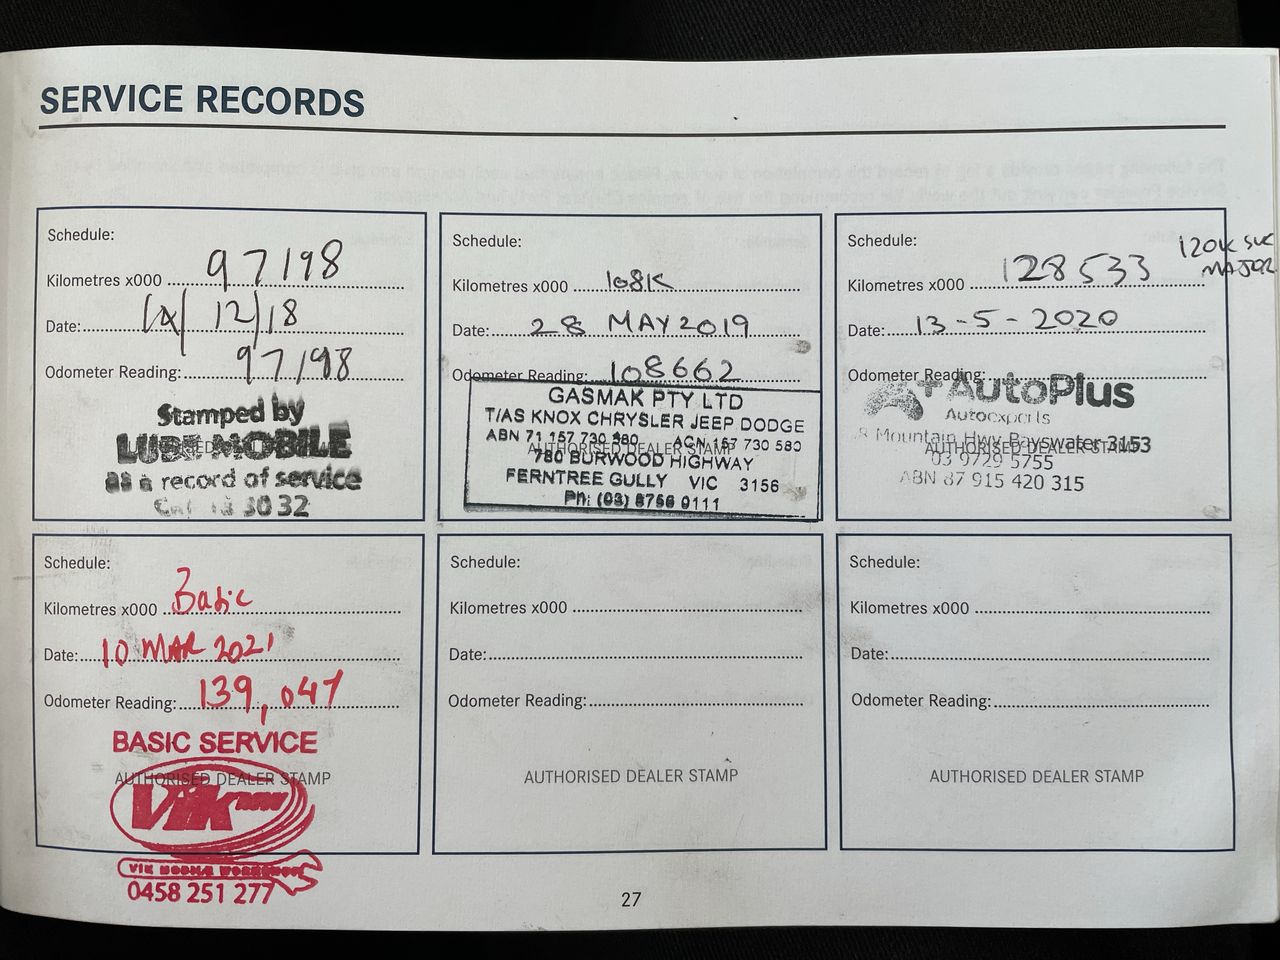 SERVICE RECORDS
Schedule:
Kilometres x000 97198
Date: 12/18
Odometer Reading: 97198
Stamped by
LUBE MOBILE
as a record of service
AUTHORISED DEALER STAMP
30 32
Schedule:
Kilometres x000 108K
Date: 28 MAY 2019
Odometer Reading: 108662
GASMAK PTY LTD
T/AS KNOX CHRYSLER JEEP DODGE
ABN 71 157 730 580 ACN 157 730 580
AUTHORISED DEALER STAMP
780 BURWOOD HIGHWAY
FERNTREE GULLY VIC 3156
Ph: (03) 8756 0111
Schedule:
120K SVC
MAJOR
Kilometres x000 128533
Date: 13-5-2020
Odometer Reading:
AutoPlus
Autoexperts
Mountain Hwy Bayswater 3153
AUTHORISED DEALER STAMP
03 9729 5755
ABN 87 915 420 315
Schedule:
Kilometres x000 Basic
Date: 10 MAR 2021
Odometer Reading: 139,047
BASIC SERVICE
AUTHORISED DEALER STAMP
Vik
VIK MOBILE WORKSHOP
0458 251 277
Schedule:
Kilometres x000
Date:
Odometer Reading:
AUTHORISED DEALER STAMP
Schedule:
Kilometres x000
Date:
Odometer Reading:
AUTHORISED DEALER STAMP
27